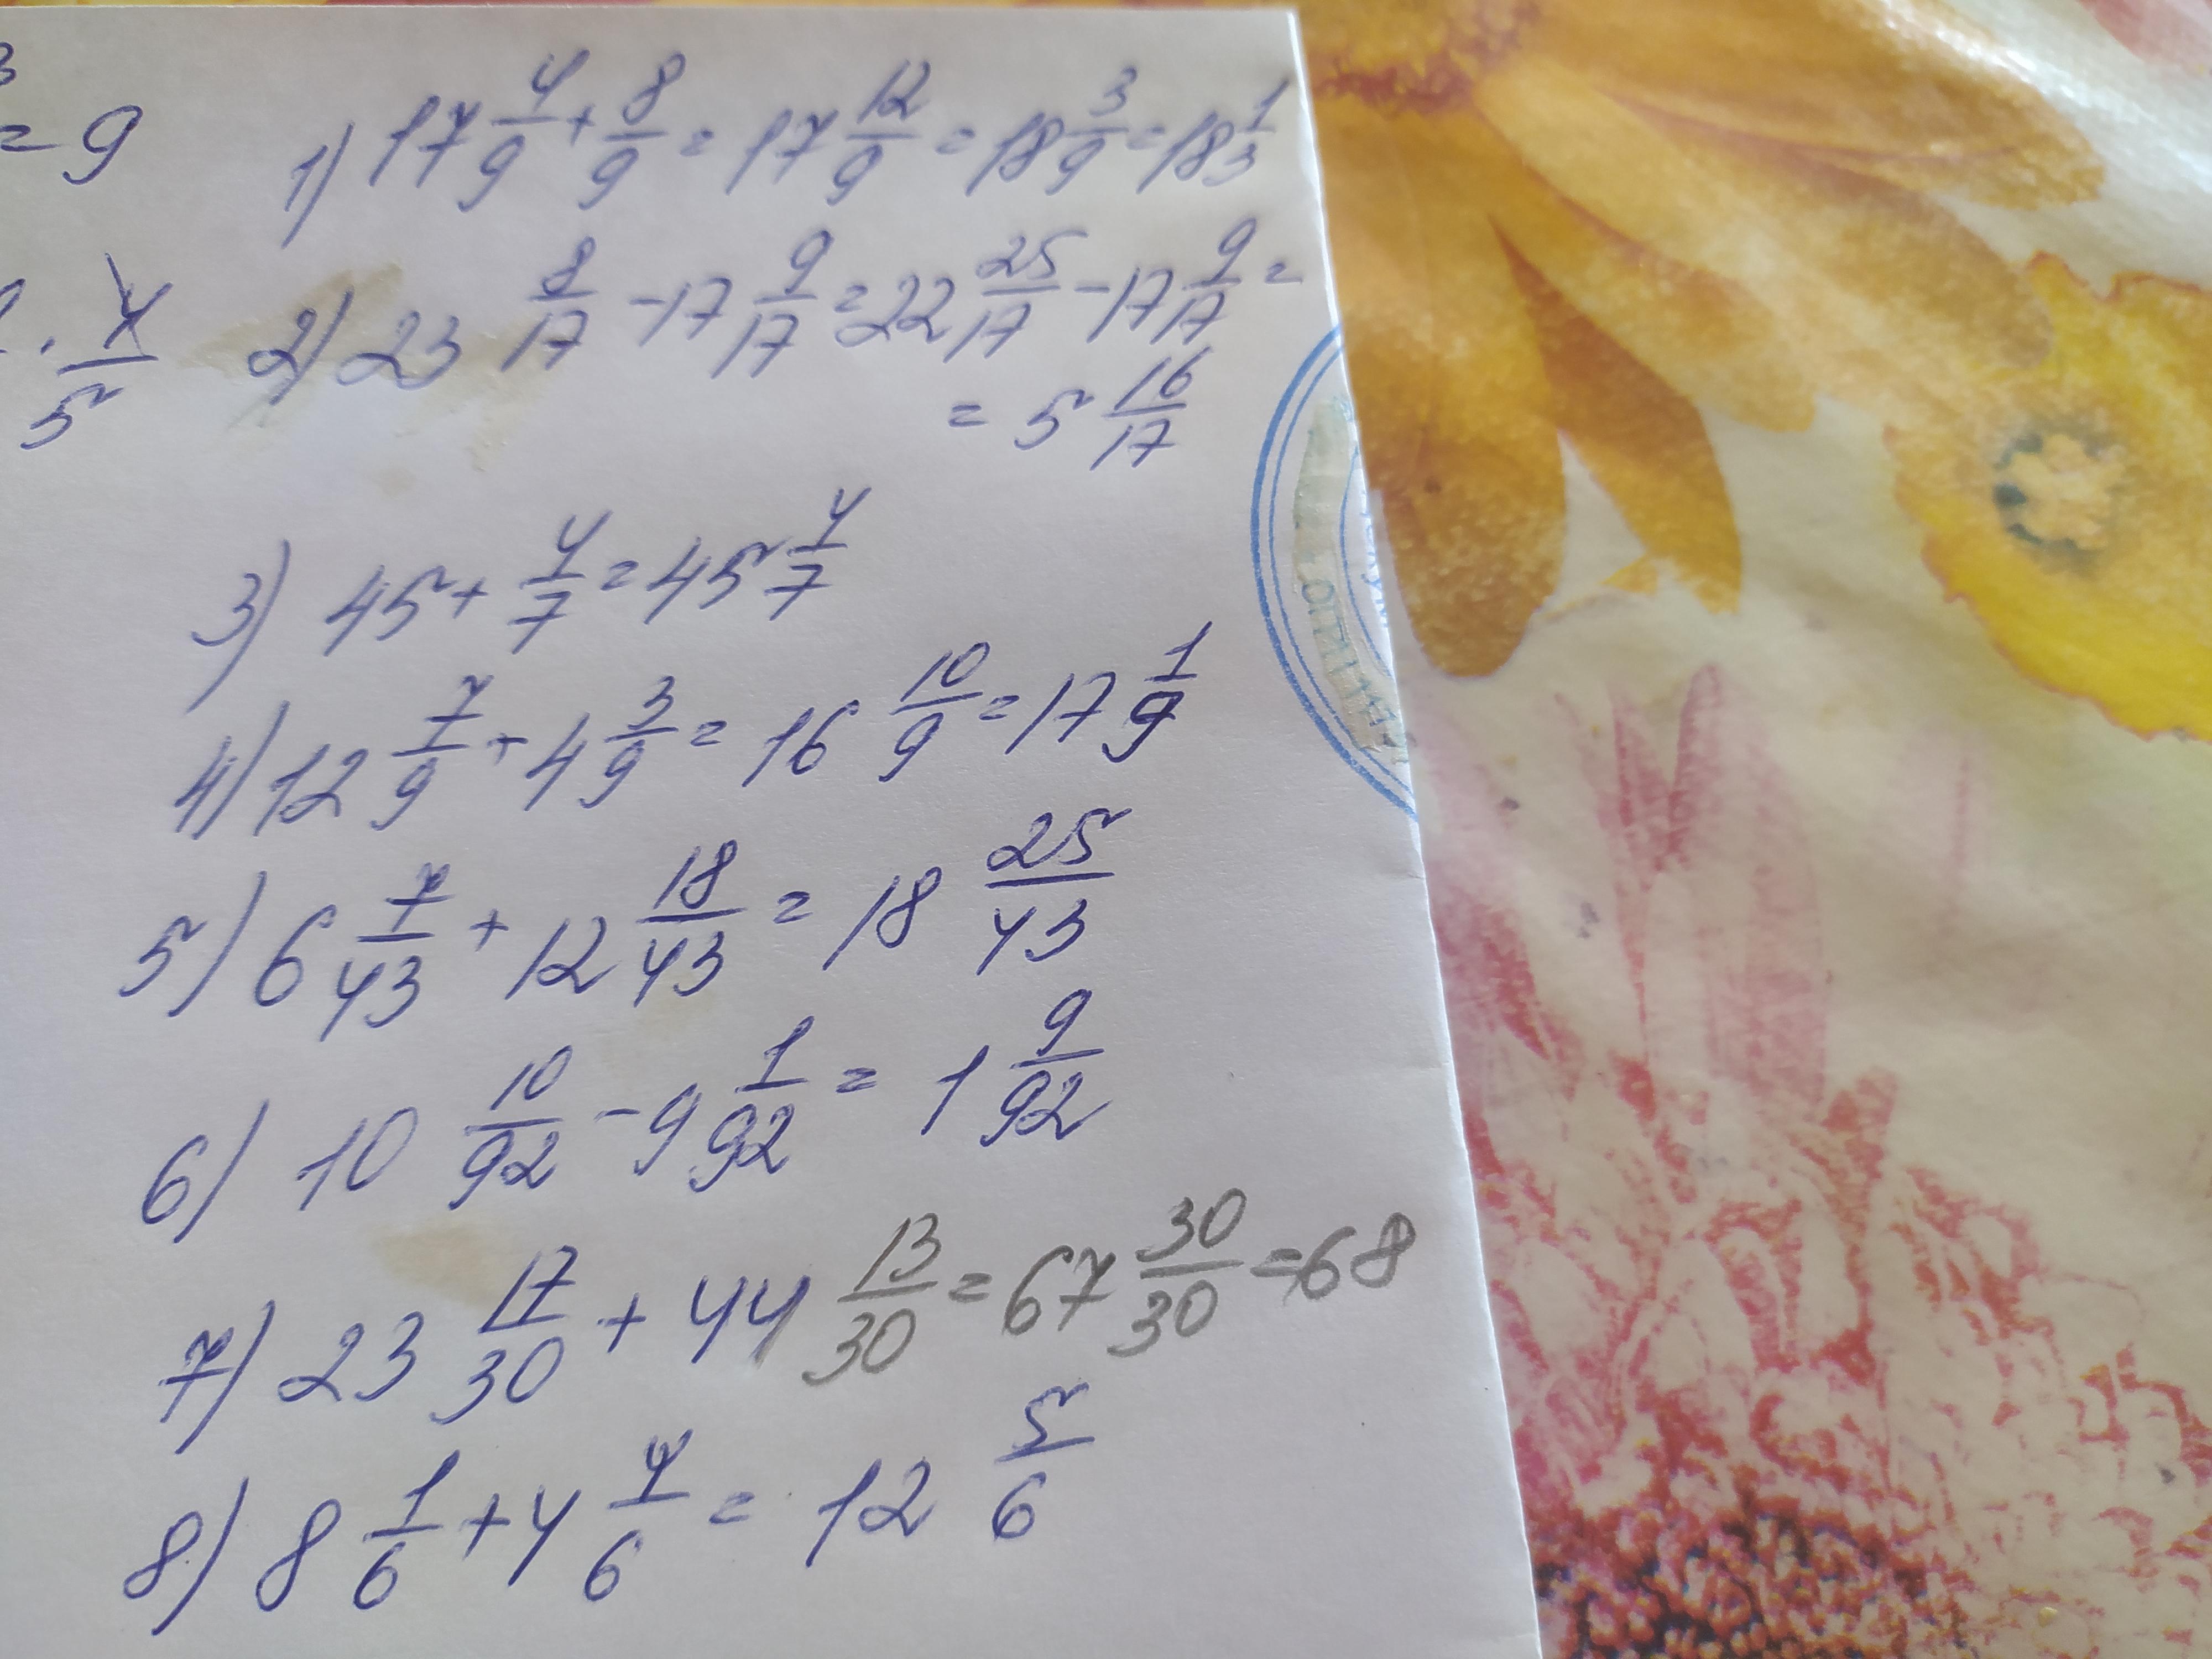 = 9
4/5
1) 17 4/9 + 8/9 = 17 12/9 = 18 3/9 = 18 1/3
2) 23 8/17 - 17 9/17 = 22 25/17 - 17 9/17 =
= 5 16/17
3) 45 + 4/7 = 45 4/7
4) 12 7/9 + 4 3/9 = 16 10/9 = 17 1/9
5) 6 7/43 + 12 18/43 = 18 25/43
6) 10 10/92 - 9 1/92 = 1 9/92
7) 23 17/30 + 44 13/30 = 67 30/30 = 68
8) 8 1/6 + 4 4/6 = 12 5/6